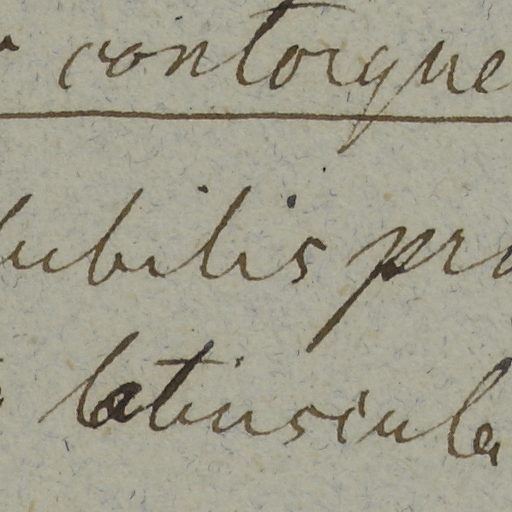 contorque
lubilis pro
latiuscula